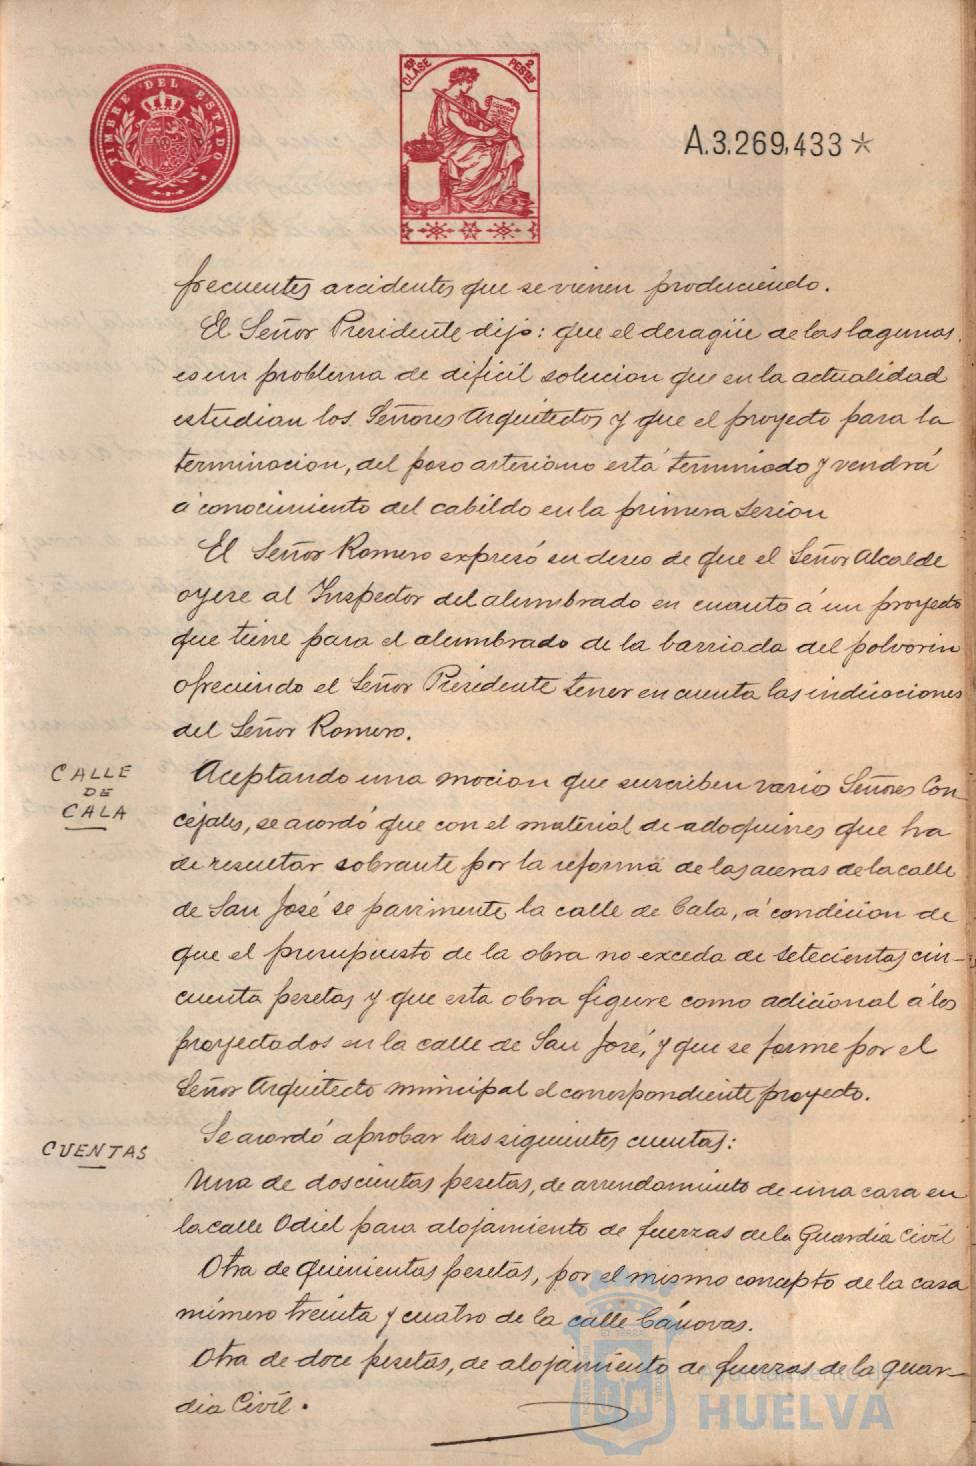 TIMBRE DEL ESTADO
10ª CLASE
2 PESTAS
A.3.269,433*
frecuentes accidentes que se vienen produciendo.
El Señor Presidente dijo: que el desagüe de las lagunas,
es un problema de dificil solucion que en la actualidad
estudian los Señores Arquitectos y que el proyecto para la
terminacion, del poso arteriano está terminado y vendrá
á conocimiento del cabildo en la primera sesion
El Señor Romero expresó su deseo de que el Señor Alcalde
oyese al Inspector del alumbrado en cuanto á un proyecto
que tiene para el alumbrado de la barriada del polvorin
ofreciendo el Señor Presidente tener en cuenta las indicaciones
del Señor Romero.
CALLE
DE
CALA
Aceptando una mocion que suscriben varios Señores Con-
cejales, se acordó que con el material de adoquines que ha
de resultar sobrante por la reforma de las aceras de la calle
de San José se pavimente la calle de Cala, á condicion de
que el presupuesto de la obra no exceda de setecientas cin-
cuenta pesetas y que esta obra figure como adicional á los
proyectados en la calle de San José, y que se forme por el
Señor Arquitecto municipal el correspondiente proyecto.
CUENTAS
Se acordó aprobar las siguientes cuentas:
Una de doscientas pesetas, de arrendamiento de una casa en
la calle Odiel para alojamiento de fuerzas de la Guardia Civil
Otra de quinientas pesetas, por el mismo concepto de la casa
número treinta y cuatro de la calle Cánovas.
Otra de doce pesetas, de alojamiento de fuerzas de la Guar-
dia Civil.
Ayuntamiento de
HUELVA